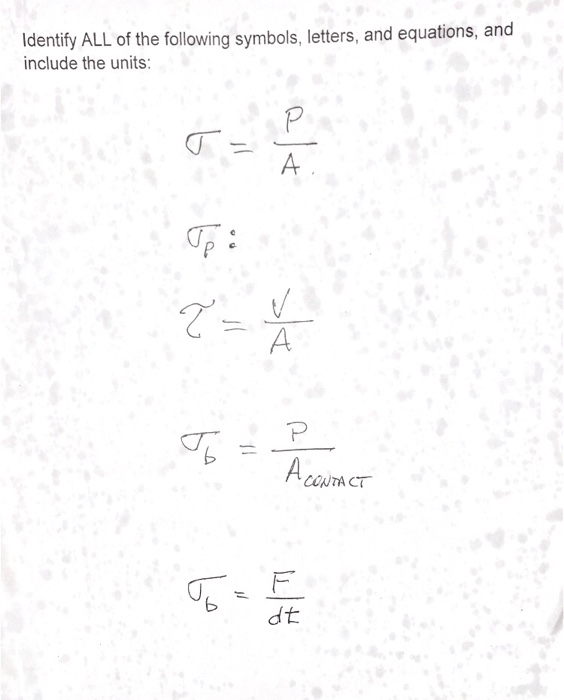 Identify ALL of the following symbols, letters, and equations, and
include the units:
σ = P/A.
σp:
τ = V/A
σb = P/A CONTACT
σb = F/dt